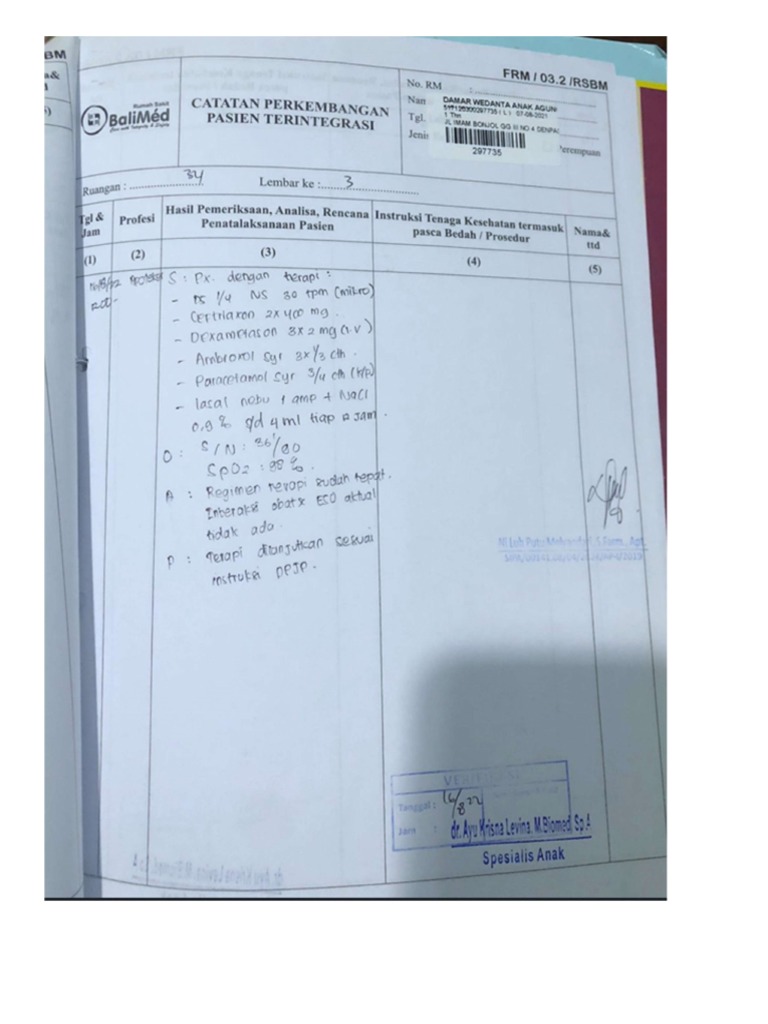 BM
FRM / 03.2 /RSBM
Rumah Sakit
BaliMéd
CATATAN PERKEMBANGAN
PASIEN TERINTEGRASI
No. RM :
Nam DAMAR WEDANTA ANAK AGUN
( L ) 07-08-2021
Tgl. 1 Thn
JL IMAM BONJOL GG III NO 4 DENPA
Jenis
Perempuan
297735
Ruangan : 34 Lembar ke : 3
Tgl & Jam Profesi Hasil Pemeriksaan, Analisa, Rencana Penatalaksanaan Pasien Instruksi Tenaga Kesehatan termasuk pasca Bedah / Prosedur Nama& ttd
(1) (2) (3) (4) (5)
S : Px. dengan terapi :
- D5 1/4 NS 30 tpm (mikro)
- Ceftriaxon 2x400 mg.
- Dexametason 3x2 mg (i.v)
- Ambroxol syr 3x1/3 cth.
- Paracetamol syr 3/4 cth (k/p)
- lasal nebu 1 amp + NaCl
0,9% s/d 4 ml tiap 12 jam.
O : S/N : 36/90
SpO2 : 98 %.
A : Regimen terapi sudah tepat.
Interaksi obat & ESO aktual
tidak ada.
P : Terapi dilanjutkan sesuai
instruksi DPJP.
VERIFIKASI
Tanggal : 16/8 22
Jam :
dr. Ayu Krisna Levina, M.Biomed, Sp.A
Spesialis Anak